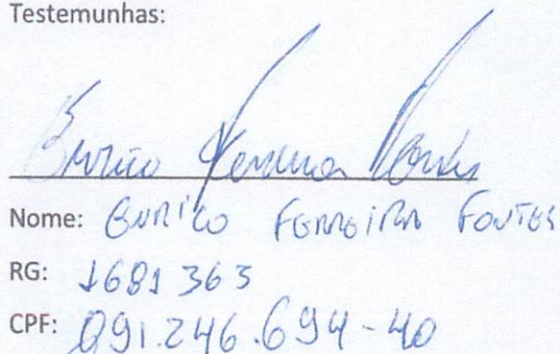 Testemunhas:
Eurico Ferreira Fontes
Nome: EURICO FERREIRA FONTES
RG: 1681363
CPF: 091.246.694-40